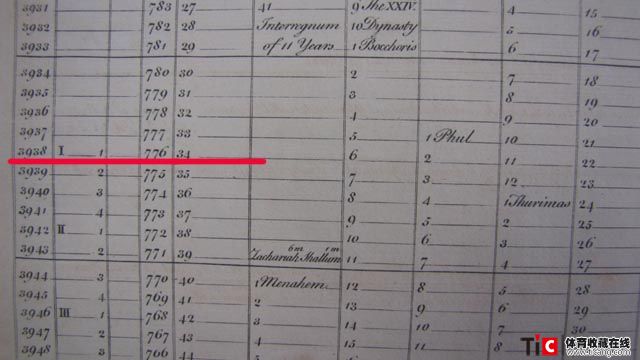 3931 783 27 41 9 The XXIV. 4 15
3932 782 28 Interregnum 10 Dynasty 5 16
3933 781 29 of 11 Years 1 Bocchoris 6 17
3934 780 30 2 7 18
3935 779 31 3 8 19
3936 778 32 4 9 20
3937 777 33 5 1 Phul 10 21
3938 I 1 776 34 6 2 11 22
3939 2 775 35 7 3 12 23
3940 3 774 36 8 4 1 Thurimas 24
3941 4 773 37 9 5 2 25
3942 II 1 772 38 10 6 3 26
6m 1m
3943 2 771 39 Zachariah Shallum 11 7 4 27
3944 3 770 40 1 Menahem 12 8 5 28
3945 4 769 41 2 13 9 6 29
3946 III 1 768 42 3 14 10 7 30
3947 2 767 43 4 15 11 8
3948 3 766 44
TiC 体育收藏在线
www.ticang.com